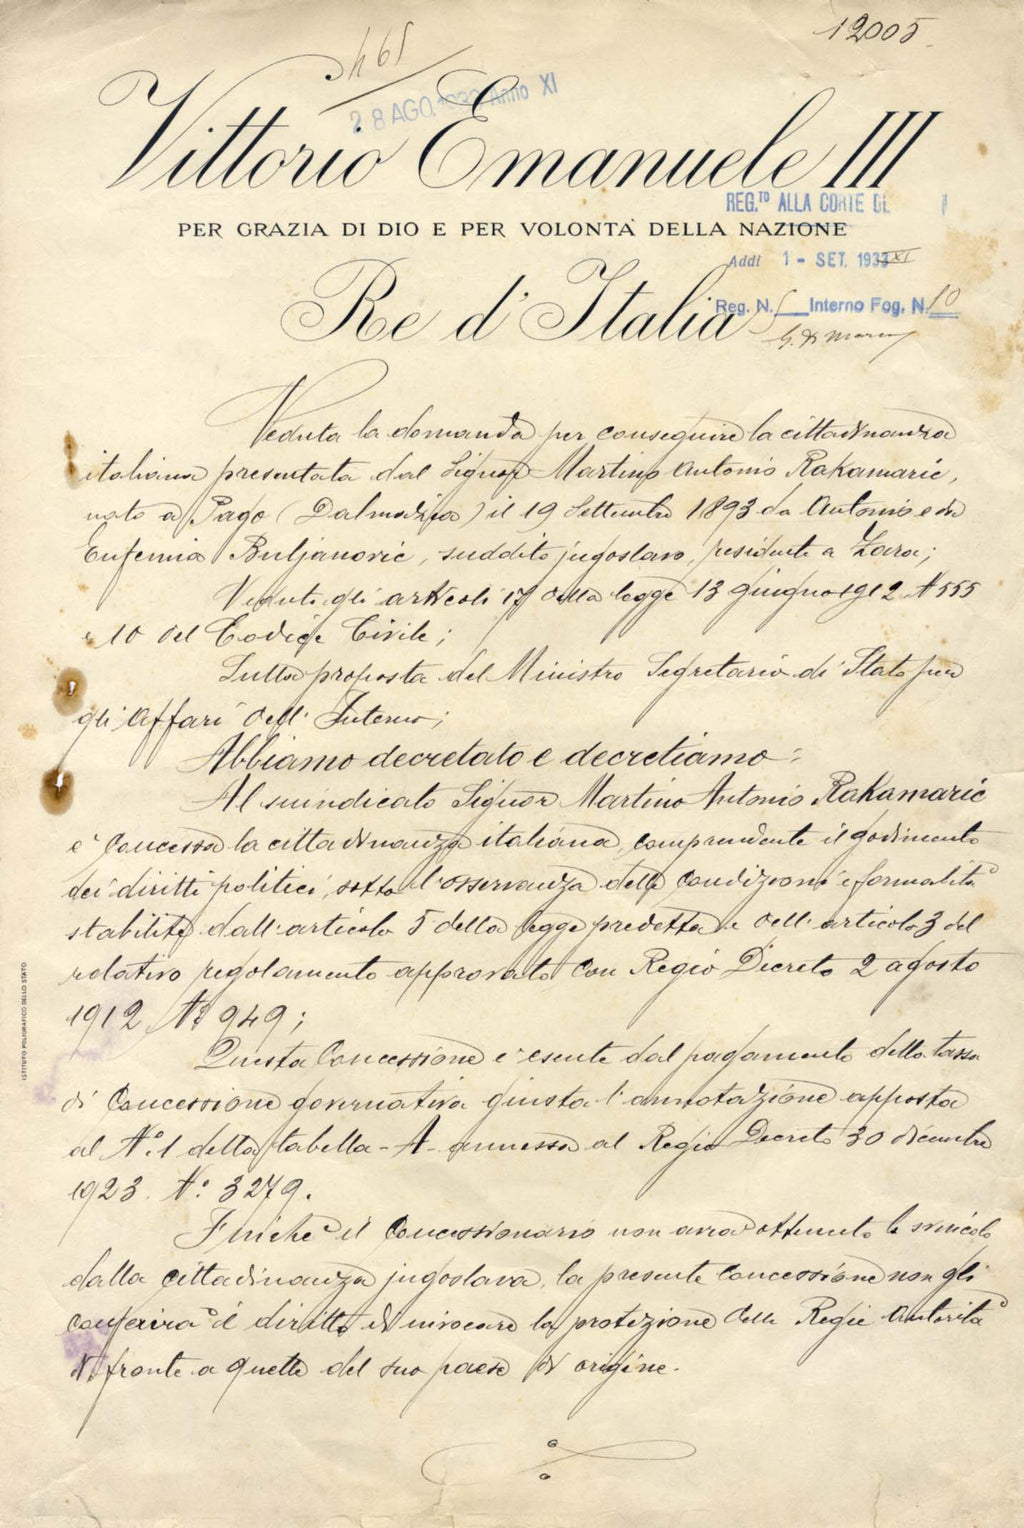 12005
28 AGO. 1933 Anno XI
Vittorio Emanuele III
REG.TO ALLA CORTE DE
PER GRAZIA DI DIO E PER VOLONTÀ DELLA NAZIONE
Addì 1 - SET. 1933 XI
Re d'Italia
Reg. N. Interno Fog. N. 10
Veduta la domanda per conseguire la cittadinanza
italiana presentata dal Signor Martino Antonio Rakamarić,
nato a Pago (Dalmazia) il 19 Settembre 1893 da Antonio e da
Eufemia Buljanović, suddito jugoslavo, residente a Zara;
Veduti gli articoli 17 della legge 13 giugno 1912 N 555
e 10 del Codice Civile;
Sulla proposta del Ministro Segretario di Stato per
gli Affari dell'Interno;
Abbiamo decretato e decretiamo:
Al suindicato Signor Martino Antonio Rakamarić
e' concessa la cittadinanza italiana, comprendente il godimento
dei diritti politici, sotto l'osservanza delle condizioni e formalità
stabilite dall'articolo 5 della legge predetta e dell'articolo 3 del
relativo regolamento approvato con Regio Decreto 2 agosto
1912 N° 949;
Questa concessione e' esente dal pagamento della tassa
di concessione governativa giusta l'annotazione apposta
al N° 1 della tabella - A - annessa al Regio Decreto 30 dicembre
1923. N° 3279.
Finche' il concessionario non avrà ottenuto lo svincolo
dalla cittadinanza jugoslava, la presente concessione non gli
conferira' il diritto di invocare la protezione delle Regie Autorità
di fronte a quelle del suo paese di origine.
ISTITUTO POLIGRAFICO DELLO STATO